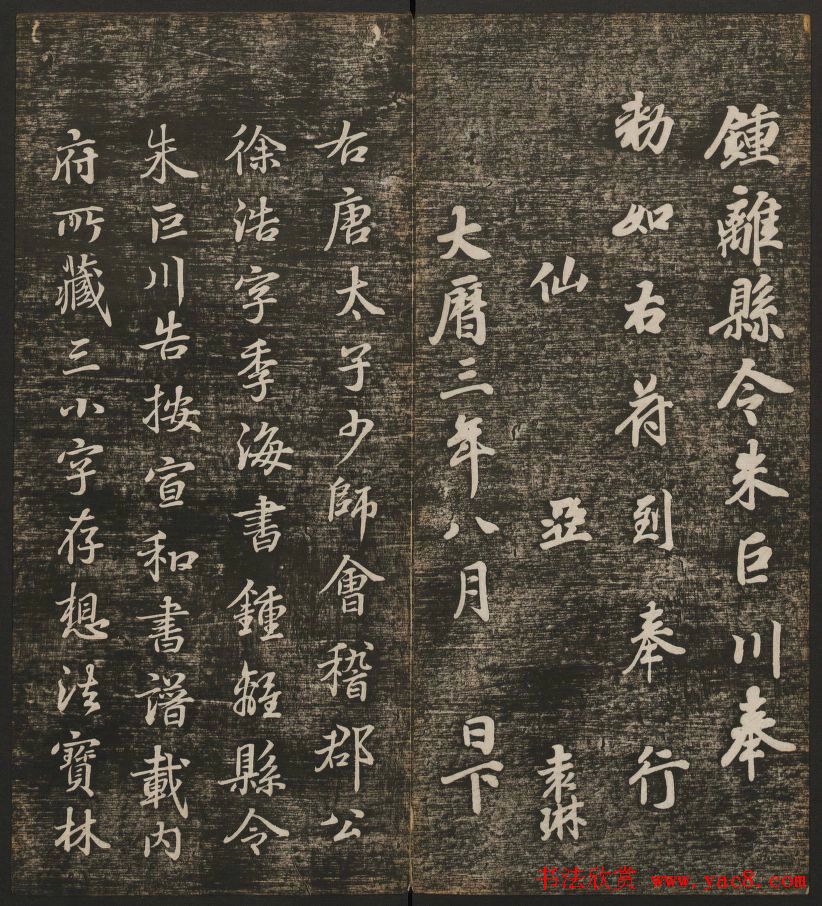 鍾離縣令朱巨川奉
勑如右符到奉行
仙 亞 袁琳
大曆三年八月 日下
右唐太子少師會稽郡公
徐浩字季海書鍾離縣令
朱巨川告按宣和書譜載内
府所藏三小字存想法寶林
书法欣赏 www.yac8.com